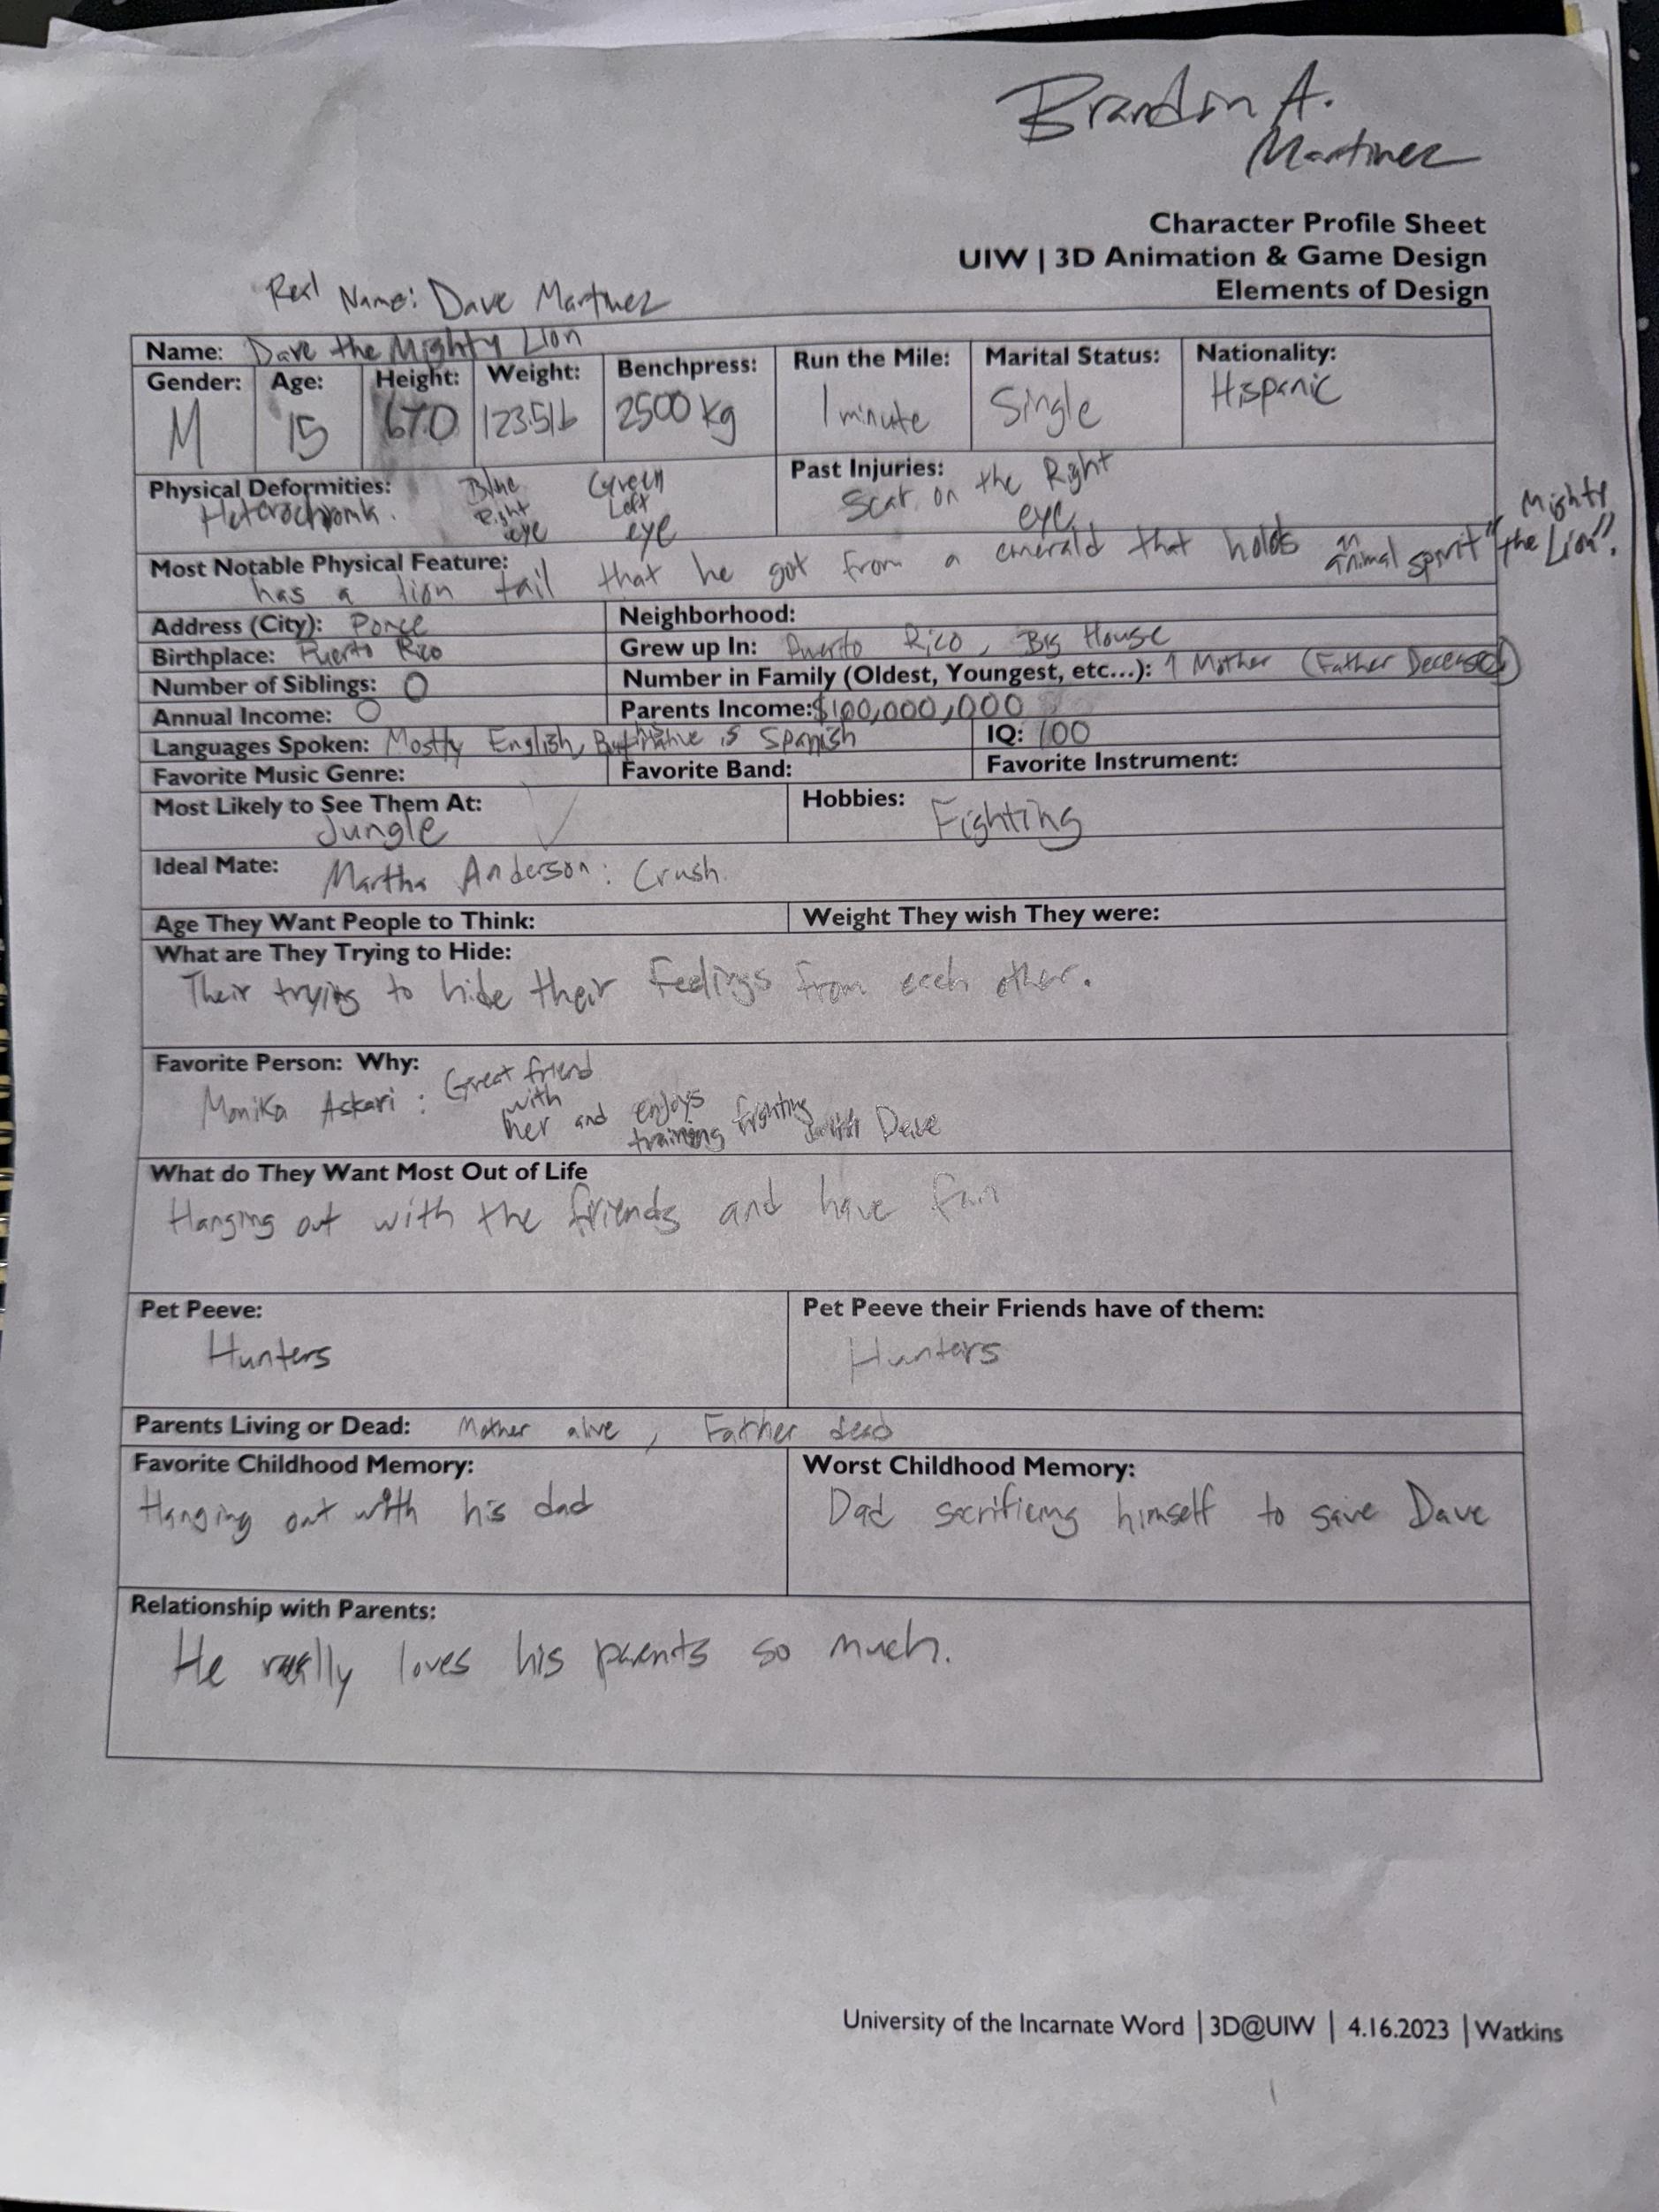 Brandon A.
Martinez
Character Profile Sheet
UIW | 3D Animation & Game Design
Elements of Design
Real Name: Dave Martinez
Name: Dave the Mighty Lion
Gender: M Age: 15 Height: Weight: 123.5lb Benchpress: 2500 kg Run the Mile: 1 minute Marital Status: Single Nationality: Hispanic
Physical Deformities: Heterochromia. Blue Right eye Green Left eye
Past Injuries: Scar on the Right eye
Most Notable Physical Feature: has a lion tail that he got from a emerald that holds an animal spirit "Mighty the Lion".
Address (City): Ponce Neighborhood:
Birthplace: Puerto Rico Grew up In: Puerto Rico, Big House
Number of Siblings: 0 Number in Family (Oldest, Youngest, etc...): 1 Mother (Father Deceased)
Annual Income: 0 Parents Income: $100,000,000
Languages Spoken: Mostly English, But his native is Spanish IQ: 100
Favorite Music Genre: Favorite Band: Favorite Instrument:
Most Likely to See Them At: Jungle Hobbies: Fighting
Ideal Mate: Martha Anderson: Crush.
Age They Want People to Think: Weight They wish They were:
What are They Trying to Hide:
Their trying to hide their feelings from each other.
Favorite Person: Why:
Monika Askari: Great friend with her and enjoys training fighting with Dave
What do They Want Most Out of Life
Hanging out with the friends and have fun
Pet Peeve: Hunters
Pet Peeve their Friends have of them: Hunters
Parents Living or Dead: Mother alive, Father dead
Favorite Childhood Memory: Hanging out with his dad
Worst Childhood Memory: Dad sacrificing himself to save Dave
Relationship with Parents:
He really loves his parents so much.
University of the Incarnate Word | 3D@UIW | 4.16.2023 | Watkins